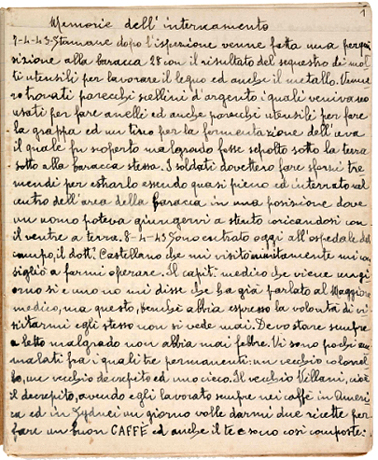 1
Memorie dell'internamento
7-4-43-Stamane dopo l'ispezione venne fatta una perqui
sizione alla baracca 28 con il risultato del sequestro di mol
ti utensili per lavorare il legno ed anche il metallo. Venne
ro trovati parecchi scellini d'argento i quali venivano
usati per fare anelli ed anche parecchi utensili per fare
la grappa ed un tino per la fermentazione dell'uva
il quale fu scoperto malgrado fosse sepolto sotto la terra
sotto alla baracca stessa. I soldati dovettero fare sforzi tre
mendi per estrarlo essendo quasi pieno ed interrato nel
centro dell'area della baracca in una posizione dove
un uomo poteva giungervi a stento coricandosi con
il ventre a terra. 8-4-43 Sono entrato oggi all'ospedale del
campo, il dott. Castellano che mi visitò unitamente mi con
sigliò a farmi operare. Il capit. medico che viene un gi
orno sì e uno no mi disse che ha già parlato al Maggiore
medico, ma questo, benchè abbia espresso la volontà di vi
sitarmi egli stesso non si vede mai. Devo stare sempre
a letto malgrado non abbia mai febbre. Vi sono pochi am
malati fra i quali tre permanenti: un vecchio colonnel
lo, un vecchio decrepito ed uno cieco. Il vecchio Villani, cioè
il decrepito, avendo egli lavorato sempre nei caffè in Ameri
ca ed in Sydnei un giorno volle darmi due ricette per
fare un buon CAFFÈ ed anche il te e sono così composte: